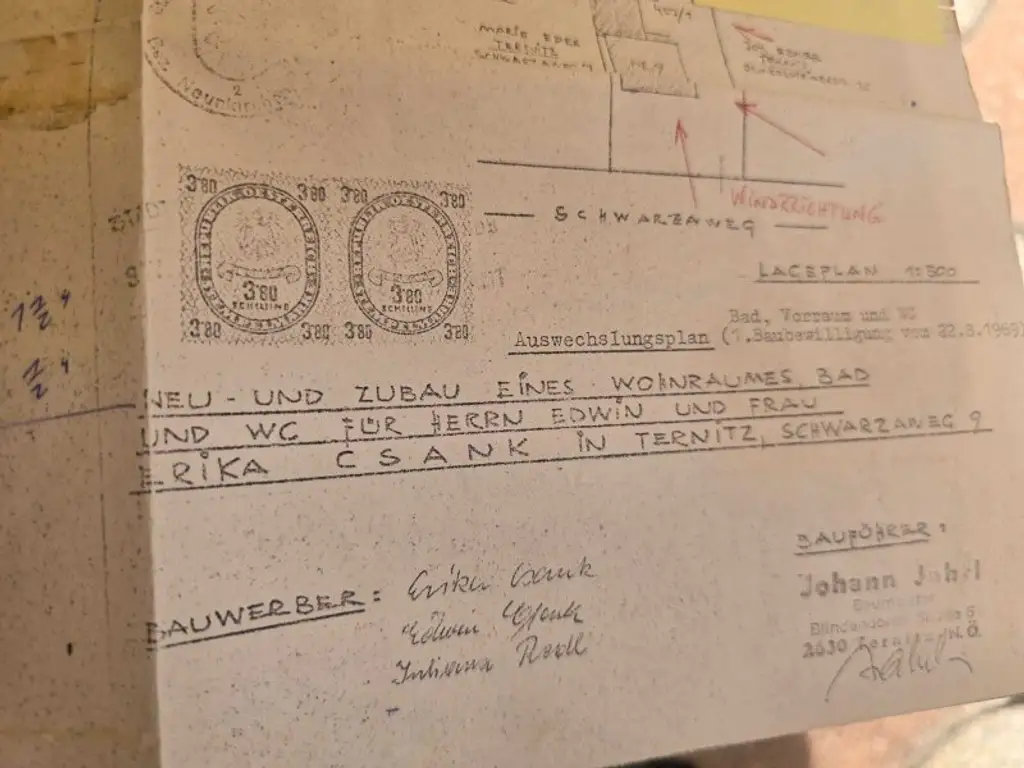 MARIE EDER
TERNITZ
NR.9
2
Bez. Neunkirchen
3·80 3·80 3·80 3·80
3·80 3·80
SCHILLING SCHILLING
3·80 3·80 3·80 3·80
WINDRICHTUNG
SCHWARZAWEG
LAGEPLAN 1:500
Bad, Vorraum und WC
Auswechslungsplan (1.Baubewilligung vom 22.8.1969)
NEU - UND ZUBAU EINES WOHNRAUMES, BAD
UND WC FÜR HERRN EDWIN UND FRAU
ERIKA CSANK IN TERNITZ, SCHWARZAWEG 9
BAUWERBER:
Erika Csank
Edwin Csank
Juliana Redl
BAUFÜHRER:
Johann Jahrl
Baumeister
2630 Ternitz, N.Ö.